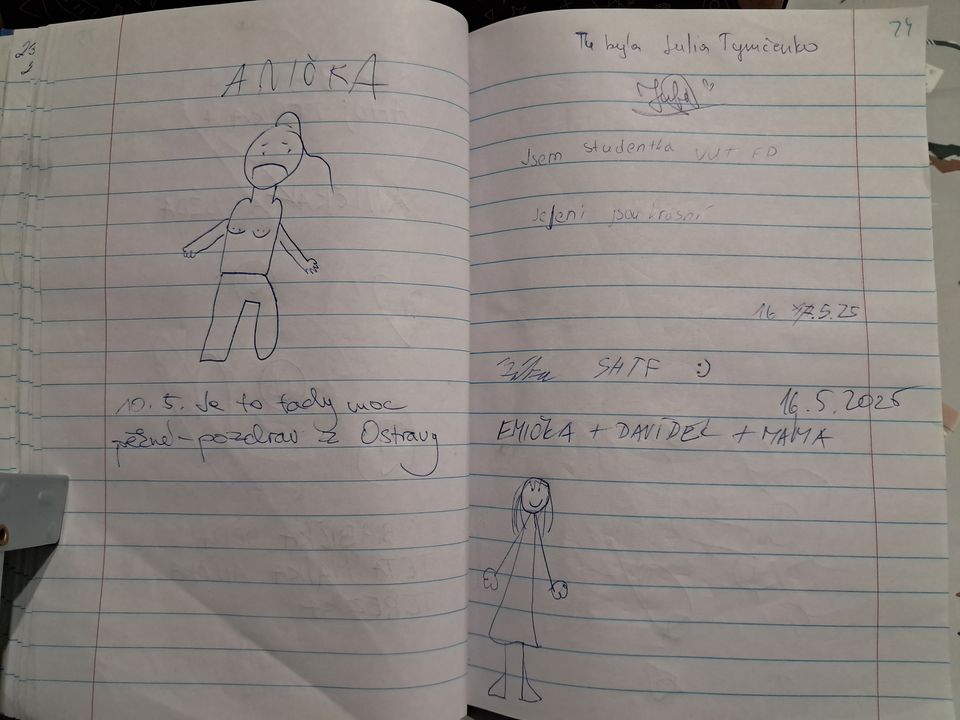 ANIČKA
10. 5. Je to tady moc
pěkné - pozdrav z Ostravy
24
Tu byla Julia Tymčenko
Jsem studentka VUT FP
Jeleni jsou krásní
16 17.5.25
SHTF :)
16.5.2025
EMIČKA + DAVÍDEK + MAMA